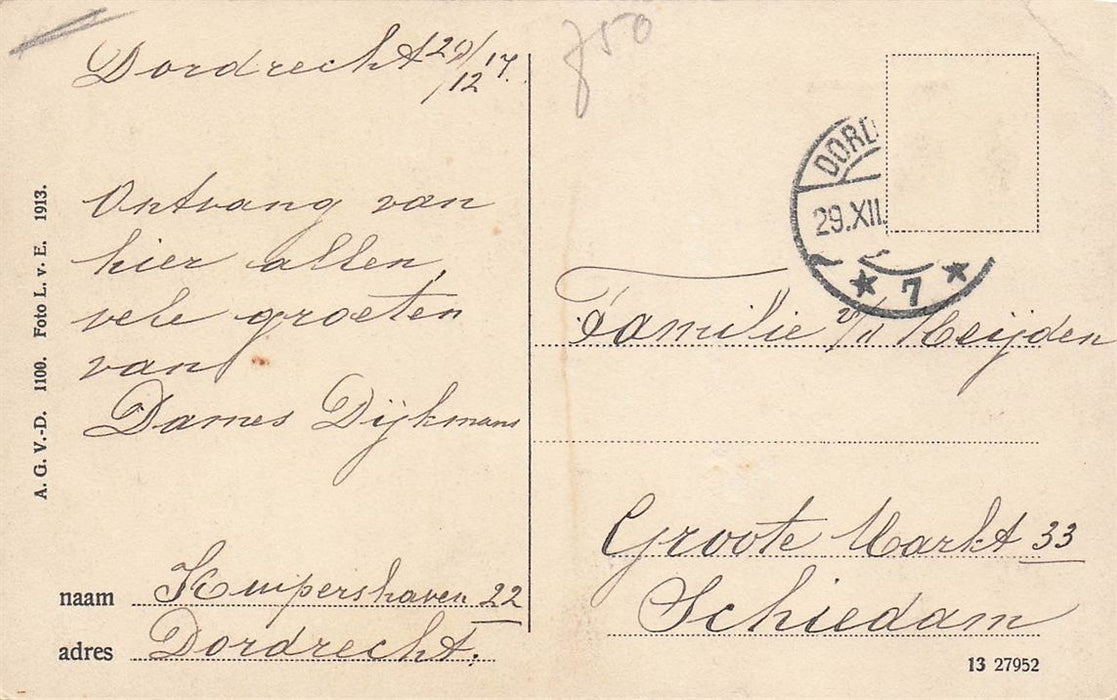 Dordrecht 29/12 17.
Ontvang van
hier allen
vele groeten
van
Dames Dijkmans
naam Kuipershaven 22
adres Dordrecht.
A. G. V.-D. 1100. Foto L. v. E. 1913.
750
DORD
29.XII.
* 7 *
Familie v/d Heijden
Groote Markt 33
Schiedam
13 27952